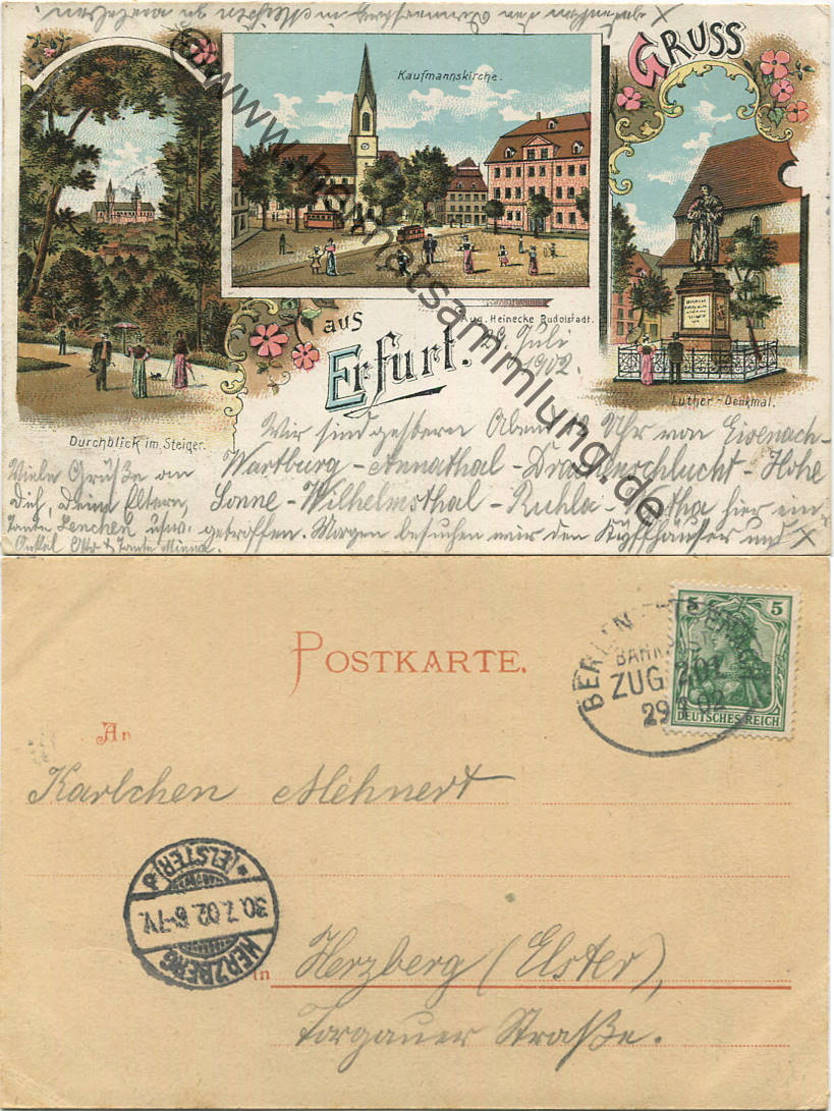 GRUSS
aus
Erfurt.
Kaufmannskirche.
Durchblick im Steiger.
Luther-Denkmal.
Aug. Heinecke Rudolstadt.
©www.heimatsammlung.de
Juli
1902.
Wir sind gestern Abend 10 Uhr von Eisenach-
Wartburg - Annathal - Drachenschlucht - Hohe
Sonne - Wilhelmsthal - Ruhla - Wutha hier ein-
getroffen. Morgen besuchen wir den Kyffhäuser und X
X
in Meißen zu
Viele Grüße an
Dich, Deine Eltern,
Tante Lenchen usw.
Onkel Otto & Tante Minna.
POSTKARTE.
An
Karlchen Mehnert
in Herzberg (Elster),
Torgauer Straße.
BERLIN
BAHN
ZUG 201
29 7 02
5 5
DEUTSCHES REICH
HERZBERG
30.7.02. 6-7V.
* (ELSTER)